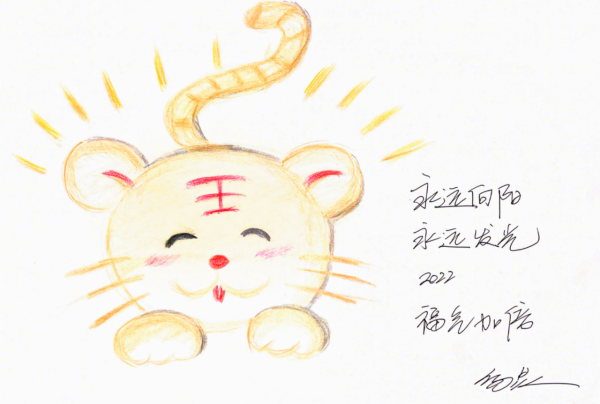 王
永远向阳
永远发光
2022
福气加倍